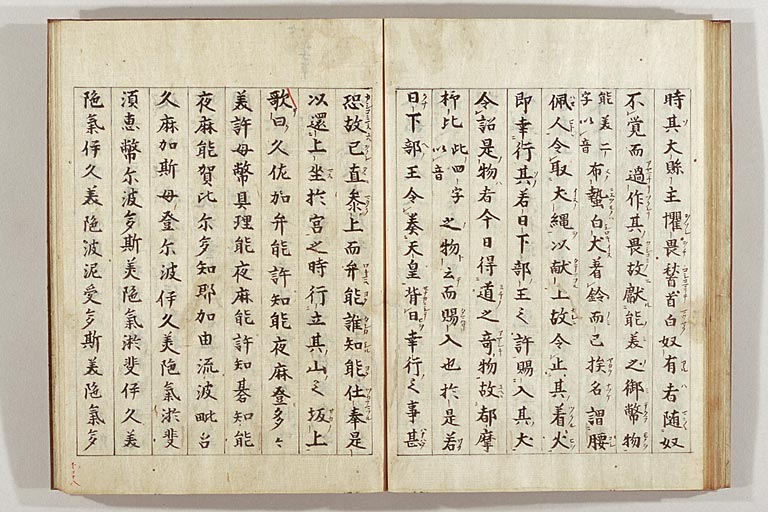 時其大縣主懼畏稽首白奴有者随奴
不覚而過作其畏故獻能美之御幣物
能美二字以音 布蟄白犬着鈴而己挨名謂腰
佩人令取犬縄以献上故令止其着火
即幸行其若日下部王之許賜入其犬
令詔是物者今日得道之奇物故都摩
杼比此四字以音之物云而賜入也於是若
日下部王令奏天皇背日幸行之事甚
恐故己直叅上而弁能誰知能仕奉是
以還上坐於宮之時行立其山之坂上
歌曰久佐加弁能許知能夜麻登多々
美許母幣具理能夜麻能許知碁知能
夜麻能賀比尓多知那加由流波毗台
久麻加斯母登尓波伊久美陁氣淤斐
湏恵幣尓波多斯美陁氣淤斐伊久美
陁氣伊久美陁波泥受多斯美陁氣多